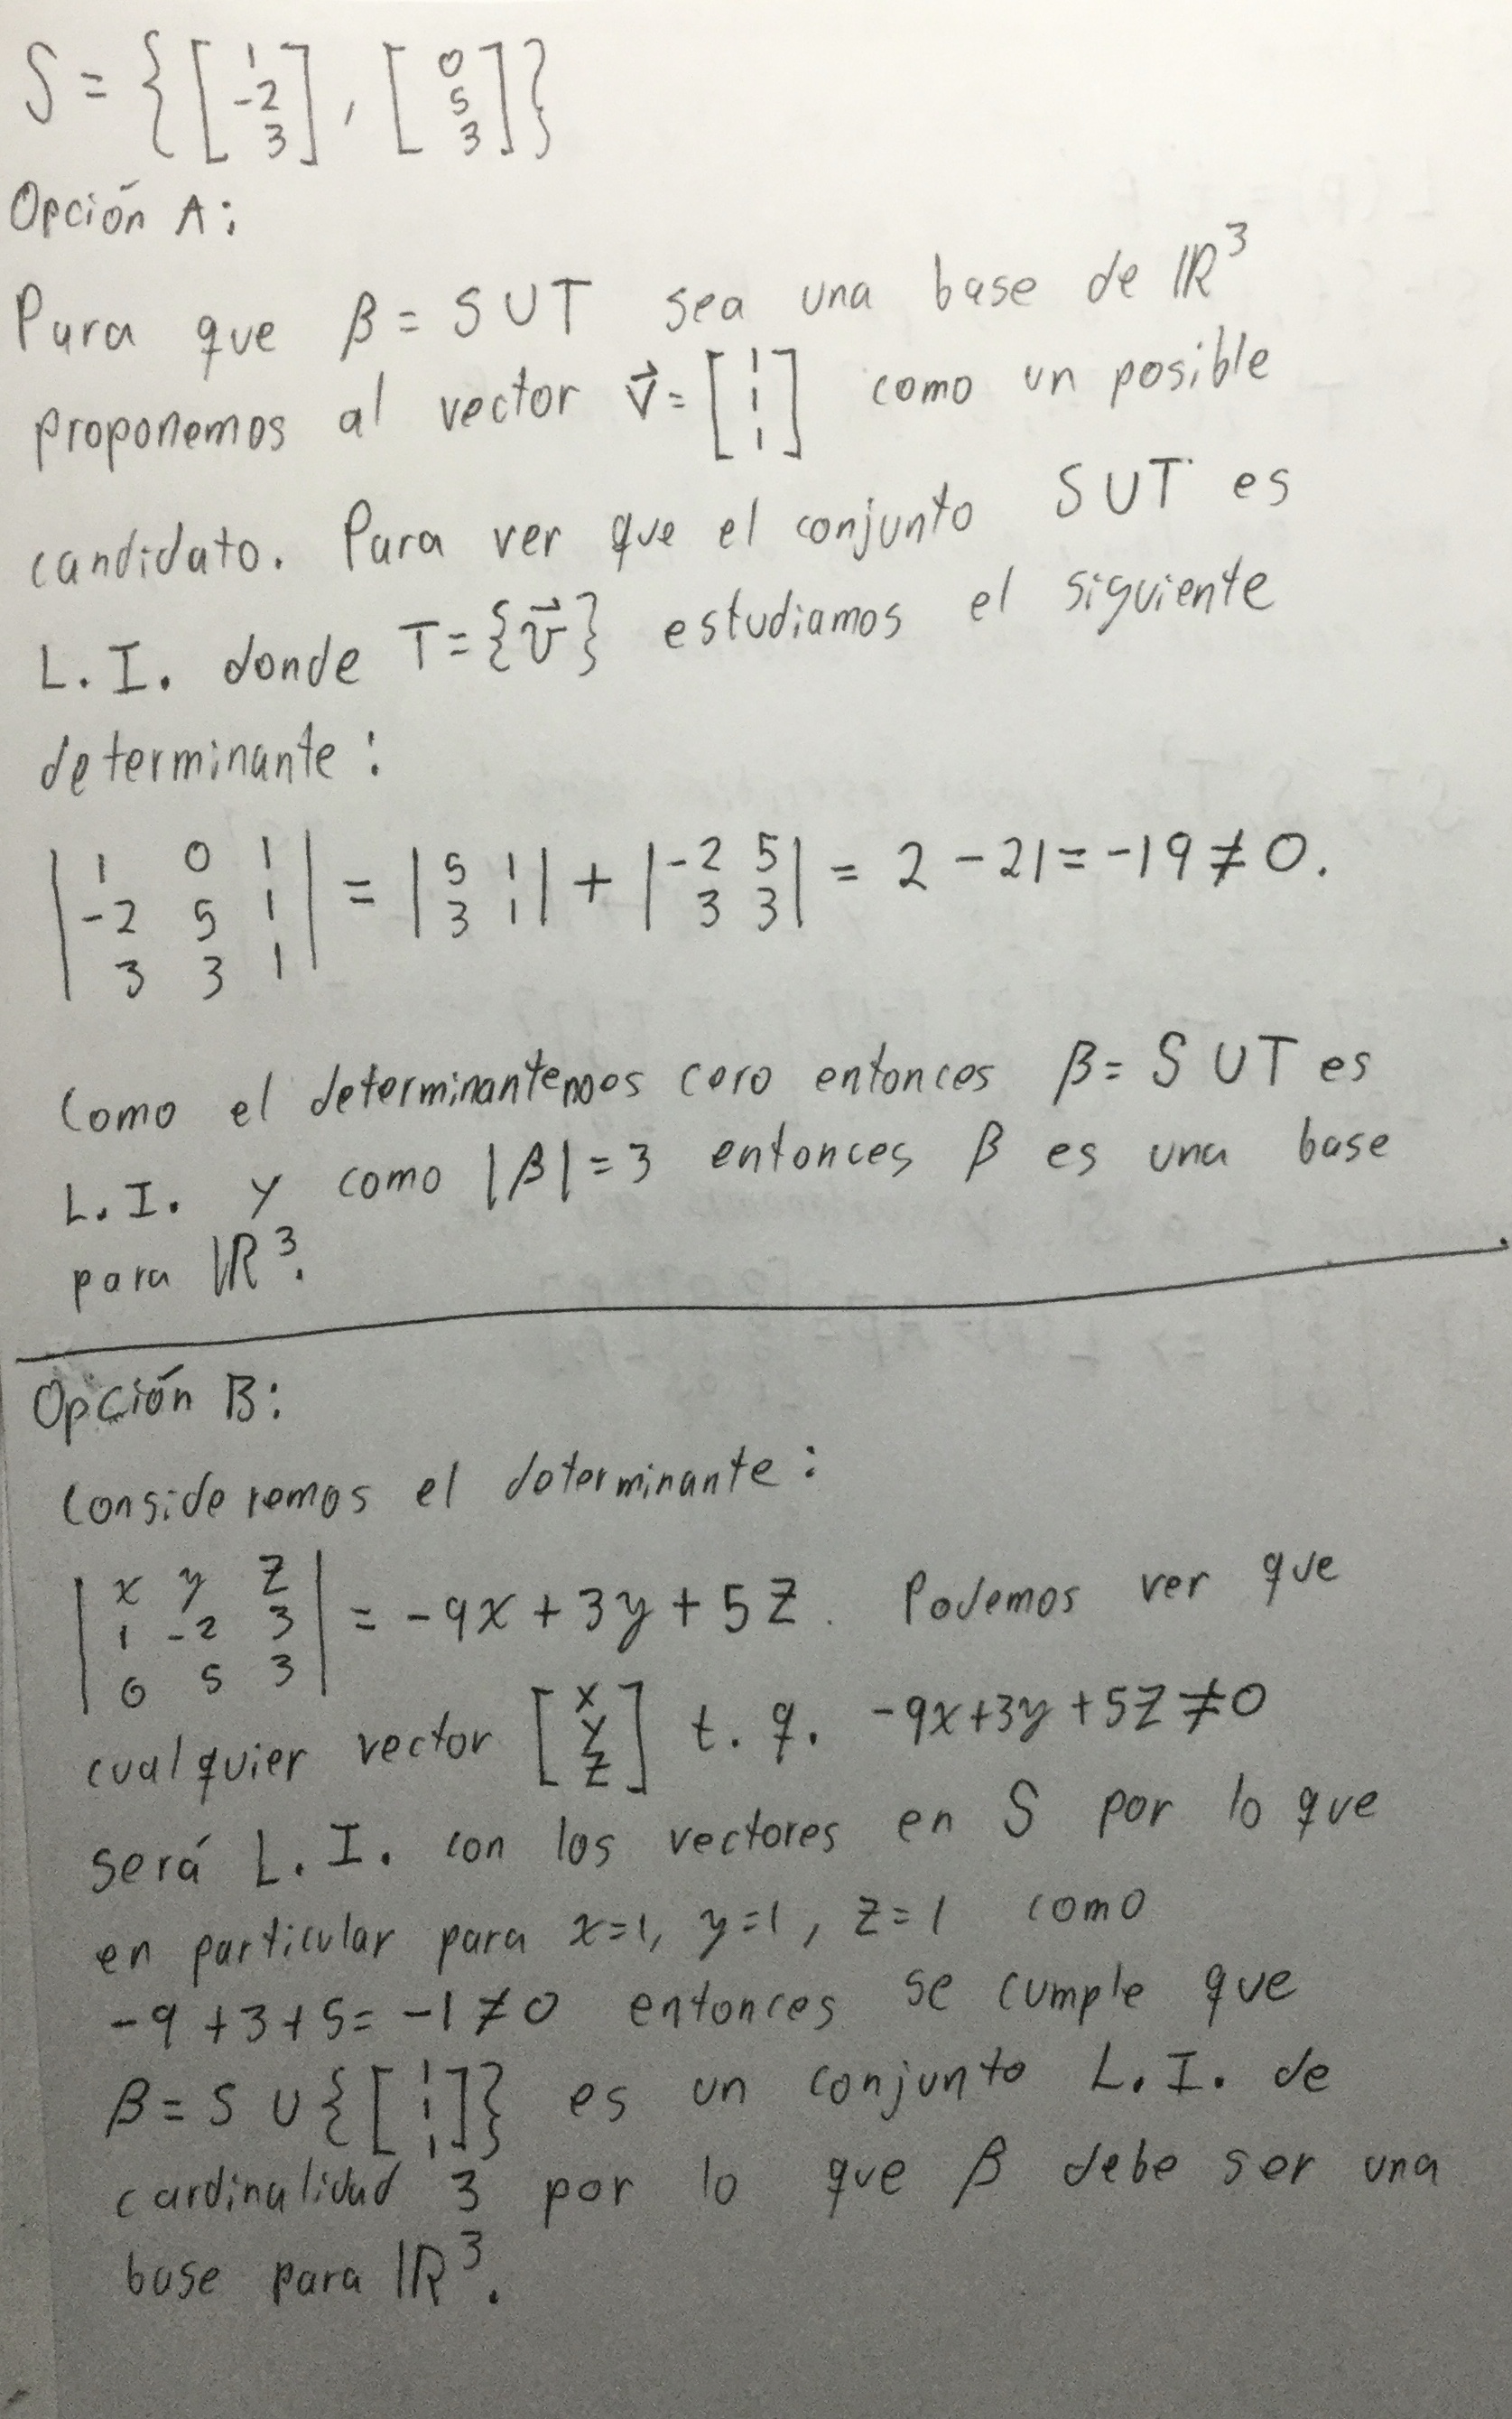 S = { [ 1 -2 3 ] , [ 0 5 3 ] }
Opción A:
Para que β = S ∪ T sea una base de ℝ³
proponemos al vector v⃗ = [ 1 1 1 ] como un posible
candidato. Para ver que el conjunto S ∪ T es
L.I. donde T = { v⃗ } estudiamos el siguiente
determinante:
| 1 0 1 ; -2 5 1 ; 3 3 1 | = | 5 1 ; 3 1 | + | -2 5 ; 3 3 | = 2 - 21 = -19 ≠ 0.
Como el determinante no es cero entonces β = S ∪ T es
L.I. y como |β| = 3 entonces β es una base
para ℝ³.
Opción B:
Consideremos el determinante:
| x y z ; 1 -2 3 ; 0 5 3 | = -9x + 3y + 5z. Podemos ver que
cualquier vector [ x y z ] t.q. -9x + 3y + 5z ≠ 0
será L.I. con los vectores en S por lo que
en particular para x=1, y=1, z=1 como
-9 + 3 + 5 = -1 ≠ 0 entonces se cumple que
β = S ∪ { [ 1 1 1 ] } es un conjunto L.I. de
cardinalidad 3 por lo que β debe ser una
base para ℝ³.